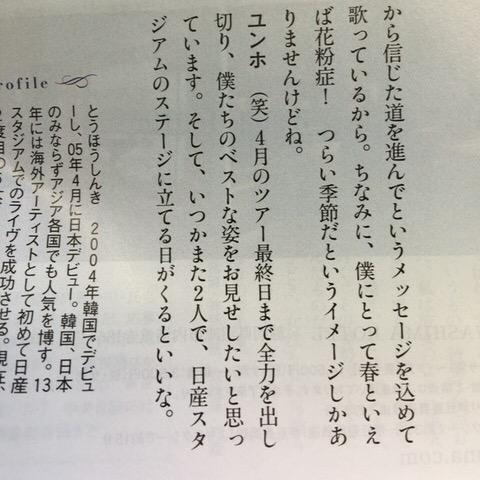 から信じた道を進んでというメッセージを込めて
歌っているから。ちなみに、僕にとって春といえ
ば花粉症！　つらい季節だというイメージしかあ
りませんけどね。
ユンホ　（笑）４月のツアー最終日まで全力を出し
切り、僕たちのベストな姿をお見せしたいと思っ
ています。そして、いつかまた２人で、日産スタ
ジアムのステージに立てる日がくるといいな。
rofile
とうほうしんき　２００４年韓国でデビュ
ーし、05年４月に日本デビュー。韓国、日本
のみならずアジア各国でも人気を博す。13
年には海外アーティストとして初めて日産
スタジアムでのライヴを成功させる。現在、